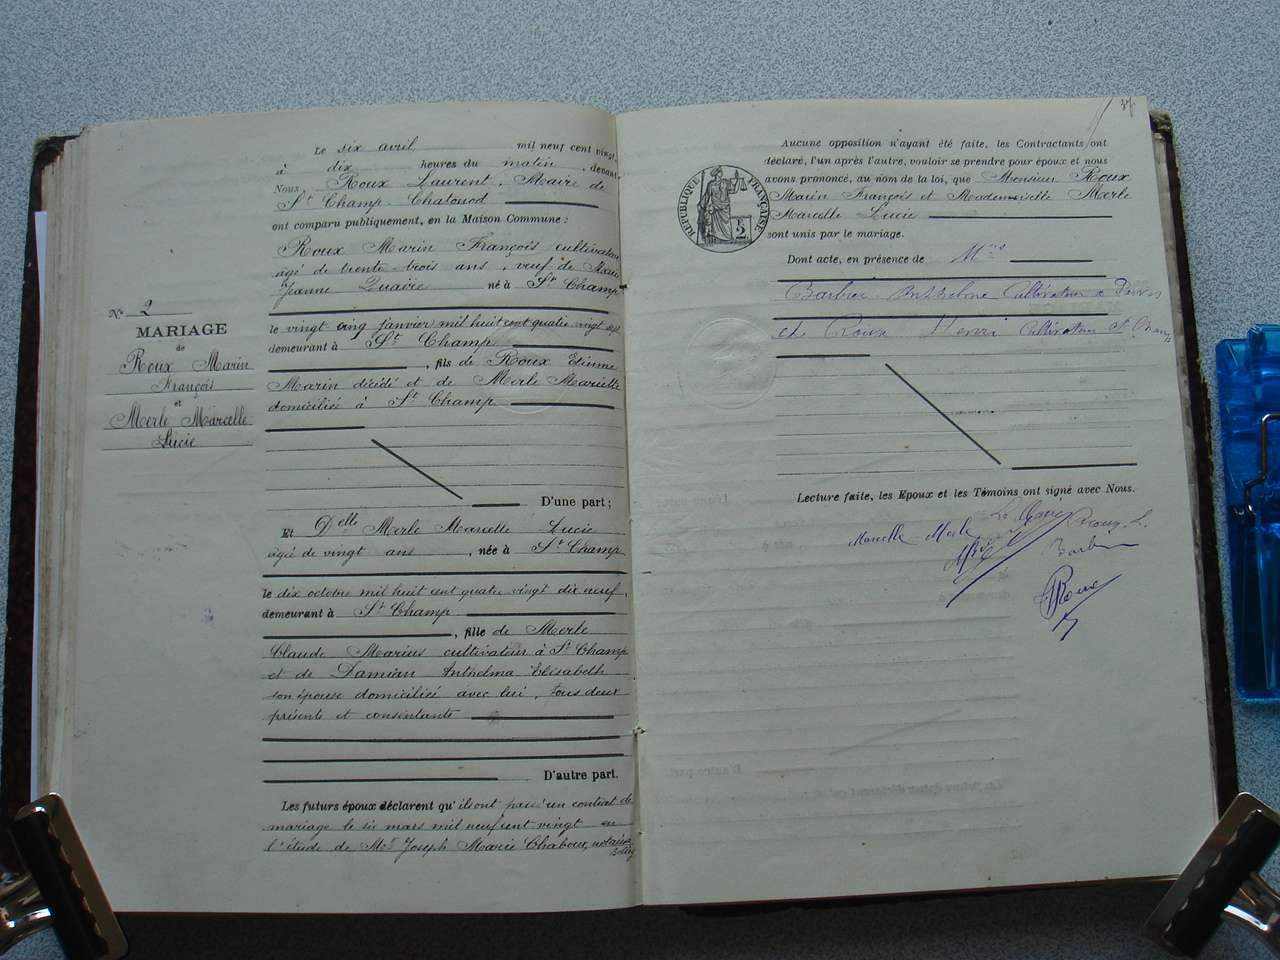 Nº 2
MARIAGE
de
Roux Marin
François
et
Merle Marcelle
Lucie
Le six avril mil neuf cent vingt,
à dix heures du matin, devant
Nous, Roux Laurent, Maire de
St Champ Chatonod
ont comparu publiquement, en la Maison Commune :
Roux Marin François cultivateur
âgé de trente trois ans, veuf de
Jeanne Quaire né à St Champ
le vingt cinq janvier mil huit cent quatre vingt
demeurant à St Champ
, fils de Roux Etienne
Marin décédé et de Merle Mariette
domiciliée à St Champ
D'une part ;
Et Delle Merle Marcelle Lucie
âgée de vingt ans, née à St Champ
le dix octobre mil huit cent quatre vingt dix neuf,
demeurant à St Champ
, fille de Merle
Claude Marius cultivateur à St Champ
et de Damian Anthelma Elisabeth
son épouse domiciliée avec lui, tous deux
présents et consentants
D'autre part.
Les futurs époux déclarent qu'ils ont passé un contrat de
mariage le six mars mil neuf cent vingt en
l'étude de Me Joseph Marie Chaboux, notaire
37
Aucune opposition n'ayant été faite, les Contractants ont
déclaré, l'un après l'autre, vouloir se prendre pour époux et nous
avons prononcé, au nom de la loi, que Monsieur Roux
Marin François et Mademoiselle Merle
Marcelle Lucie
sont unis par le mariage.
RÉPUBLIQUE FRANÇAISE
2
Dont acte, en présence de Mrs
Barbier Anthelme Cultivateur à
et Roux Henri Cultivateur St Champ
Lecture faite, les Epoux et les Témoins ont signé avec Nous.
Marcelle Merle Le Maire Roux L.
Barbier
Roux